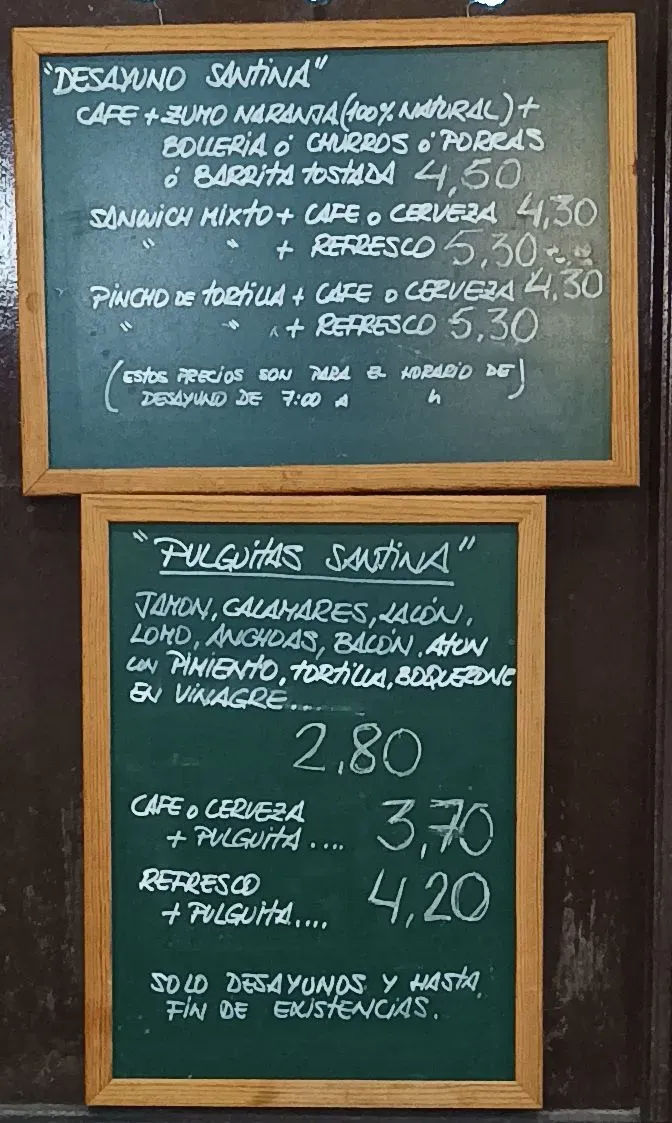 "DESAYUNO SANTINA"
CAFE + ZUMO NARANJA (100% NATURAL) +
BOLLERIA ó CHURROS ó PORRAS
ó BARRITA TOSTADA 4,50
SANWICH MIXTO + CAFE o CERVEZA 4,30
" " + REFRESCO 5,30
PINCHO DE TORTILLA + CAFE o CERVEZA 4,30
" " + REFRESCO 5,30
(ESTOS PRECIOS SON PARA EL HORARIO DE)
DESAYUNO DE 7:00 A h
"PULGUITAS SANTINA"
JAMON, CALAMARES, LACÓN,
LOMO, ANCHOAS, BACÓN, ATUN
CON PIMIENTO, TORTILLA, BOQUERONE
EN VINAGRE....
2,80
CAFE o CERVEZA
+ PULGUITA .... 3,70
REFRESCO
+ PULGUITA.... 4,20
SOLO DESAYUNOS Y HASTA
FIN DE EXISTENCIAS.